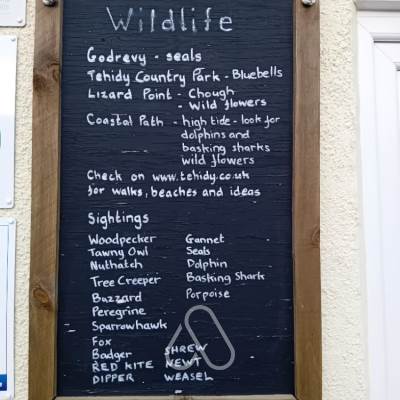 Wildlife
Godrevy - seals
Tehidy Country Park - Bluebells
Lizard Point - Chough
- Wild flowers
Coastal Path - high tide - look for
dolphins and
basking sharks
wild flowers
Check on www.tehidy.co.uk
for walks, beaches and ideas
Sightings
Woodpecker Gannet
Tawny Owl Seals
Nuthatch Dolphin
Tree Creeper Basking Shark
Buzzard Porpoise
Peregrine
Sparrowhawk
Fox
Badger SHREW
RED KITE NEWT
DIPPER WEASEL